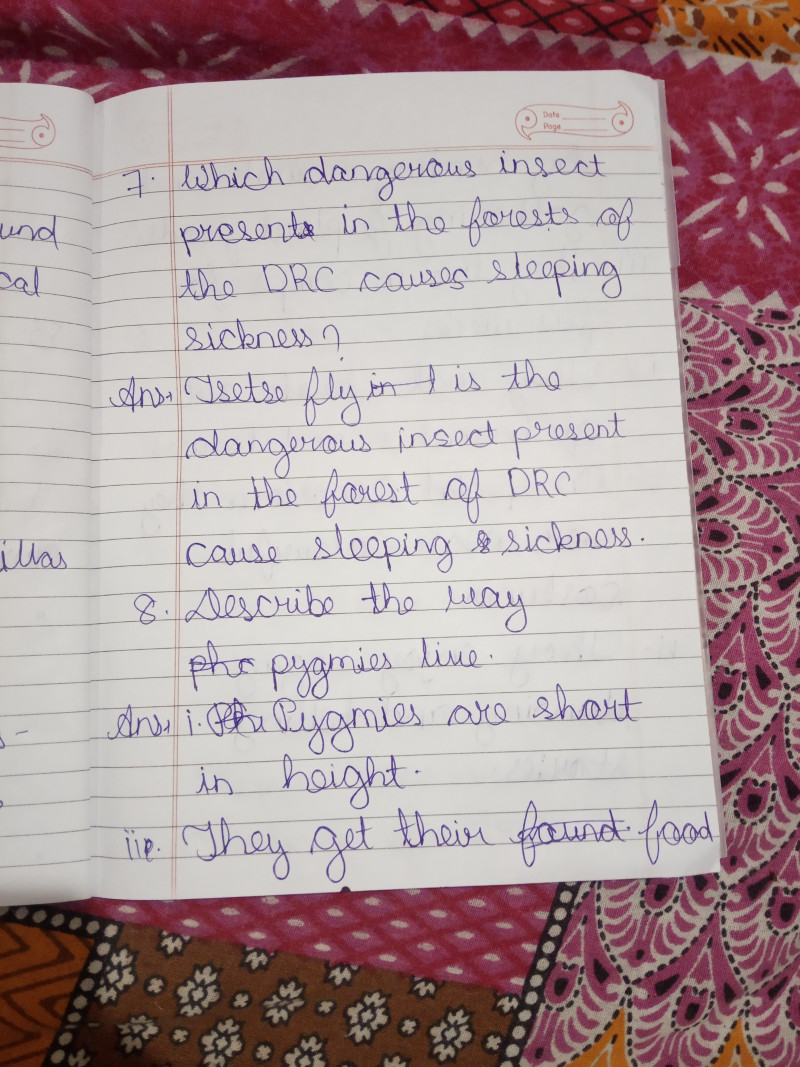 Date
Page
und
cal
illas
7. Which dangerous insect
present in the forests of
the DRC causes sleeping
sickness?
Ans, Tsetse fly is the
dangerous insect present
in the forest of DRC
cause sleeping sickness.
8. Describe the way
pygmies live.
Ans, i. Pygmies are short
in height.
ii. They get their found food